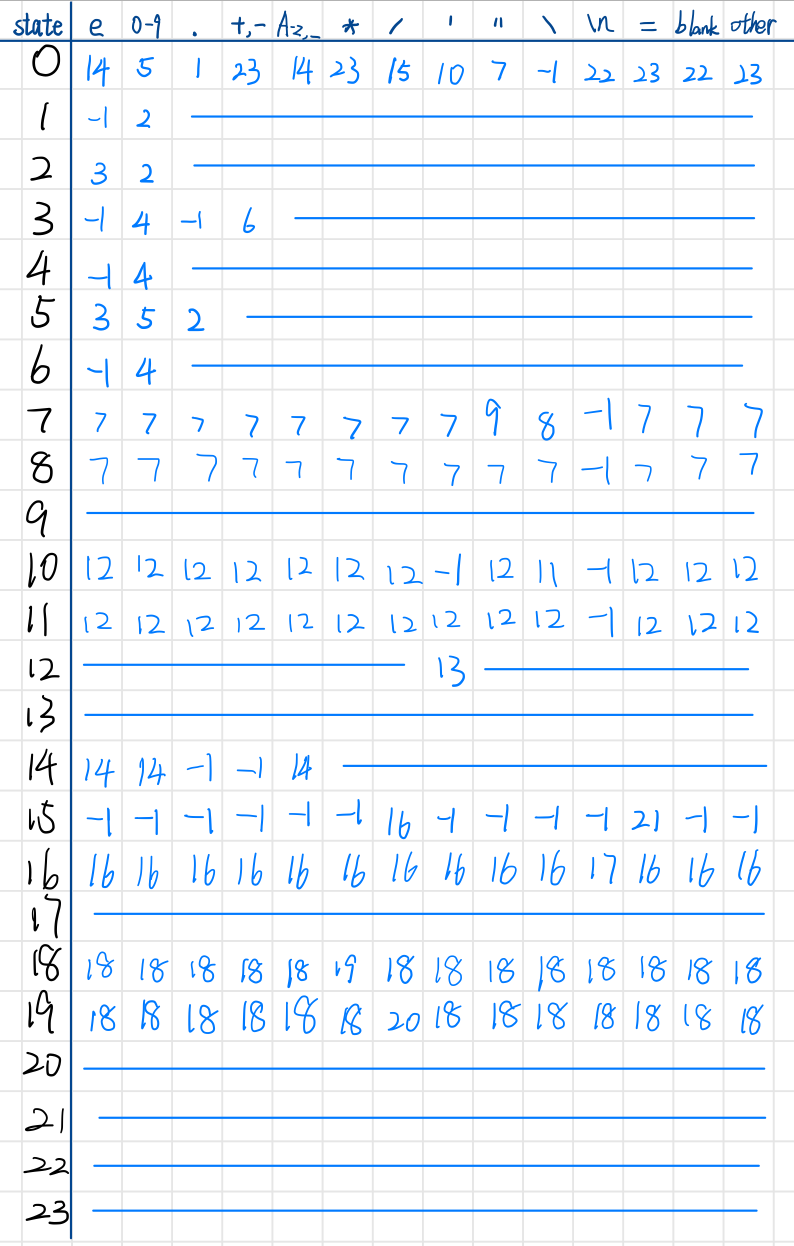 state e 0-9 . +,- A-z,_ * / ' " \ \n = blank other
0 14 5 1 23 14 23 15 10 7 -1 22 23 22 23
1 -1 2
2 3 2
3 -1 4 -1 6
4 -1 4
5 3 5 2
6 -1 4
7 7 7 7 7 7 7 7 7 9 8 -1 7 7 7
8 7 7 7 7 7 7 7 7 7 7 -1 7 7 7
9
10 12 12 12 12 12 12 12 -1 12 11 -1 12 12 12
11 12 12 12 12 12 12 12 12 12 12 -1 12 12 12
12 13
13
14 14 14 -1 -1 14
15 -1 -1 -1 -1 -1 -1 16 -1 -1 -1 -1 21 -1 -1
16 16 16 16 16 16 16 16 16 16 16 17 16 16 16
17
18 18 18 18 18 18 19 18 18 18 18 18 18 18 18
19 18 18 18 18 18 18 20 18 18 18 18 18 18 18
20
21
22
23